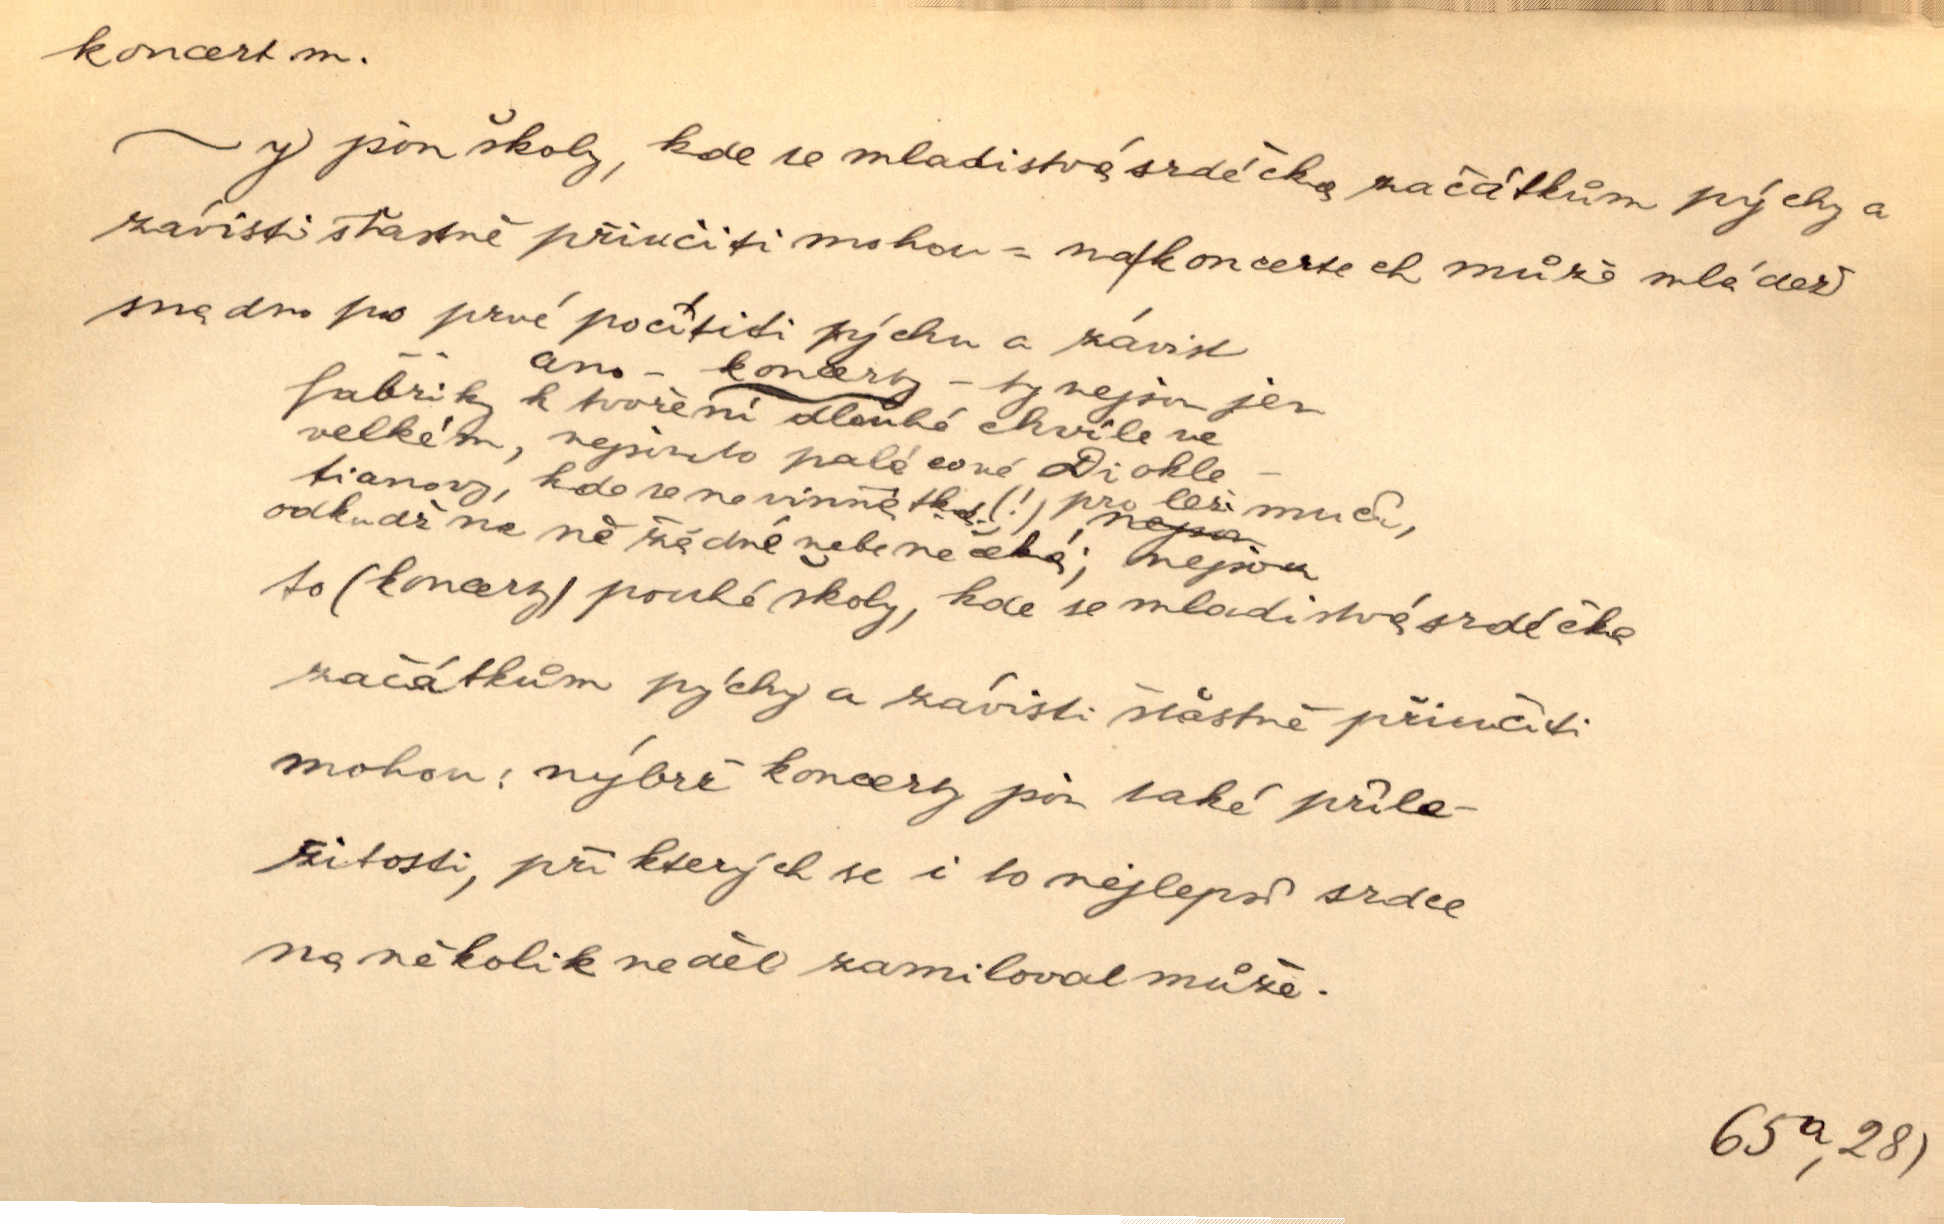 koncert m.
~y jsou školy, kde se mladistvá srdéčka začátkům pýchy a
závisti šťastně přiučiti mohou = na koncertech může mládež
snadno po prvé pocítiti pýchu a závist
ano – koncerty – ty nejsou jen
fabriky k tvoření dlouhé chvíle ve
velkém, nejsou to palácové Diokle-
tianovy, kde se neviňátka (!) pro muču,
odkudž na ně žádné nebe nečeká; nejsou
to (koncerty) pouhé školy, kde se mladistvá srdéčka
začátkům pýchy a závisti šťastně přiučiti
mohou: nýbrž koncerty jsou také příle-
žitosti, při kterých se i to nejlepší srdce
na několik neděl zamilovat může.
65a, 28)